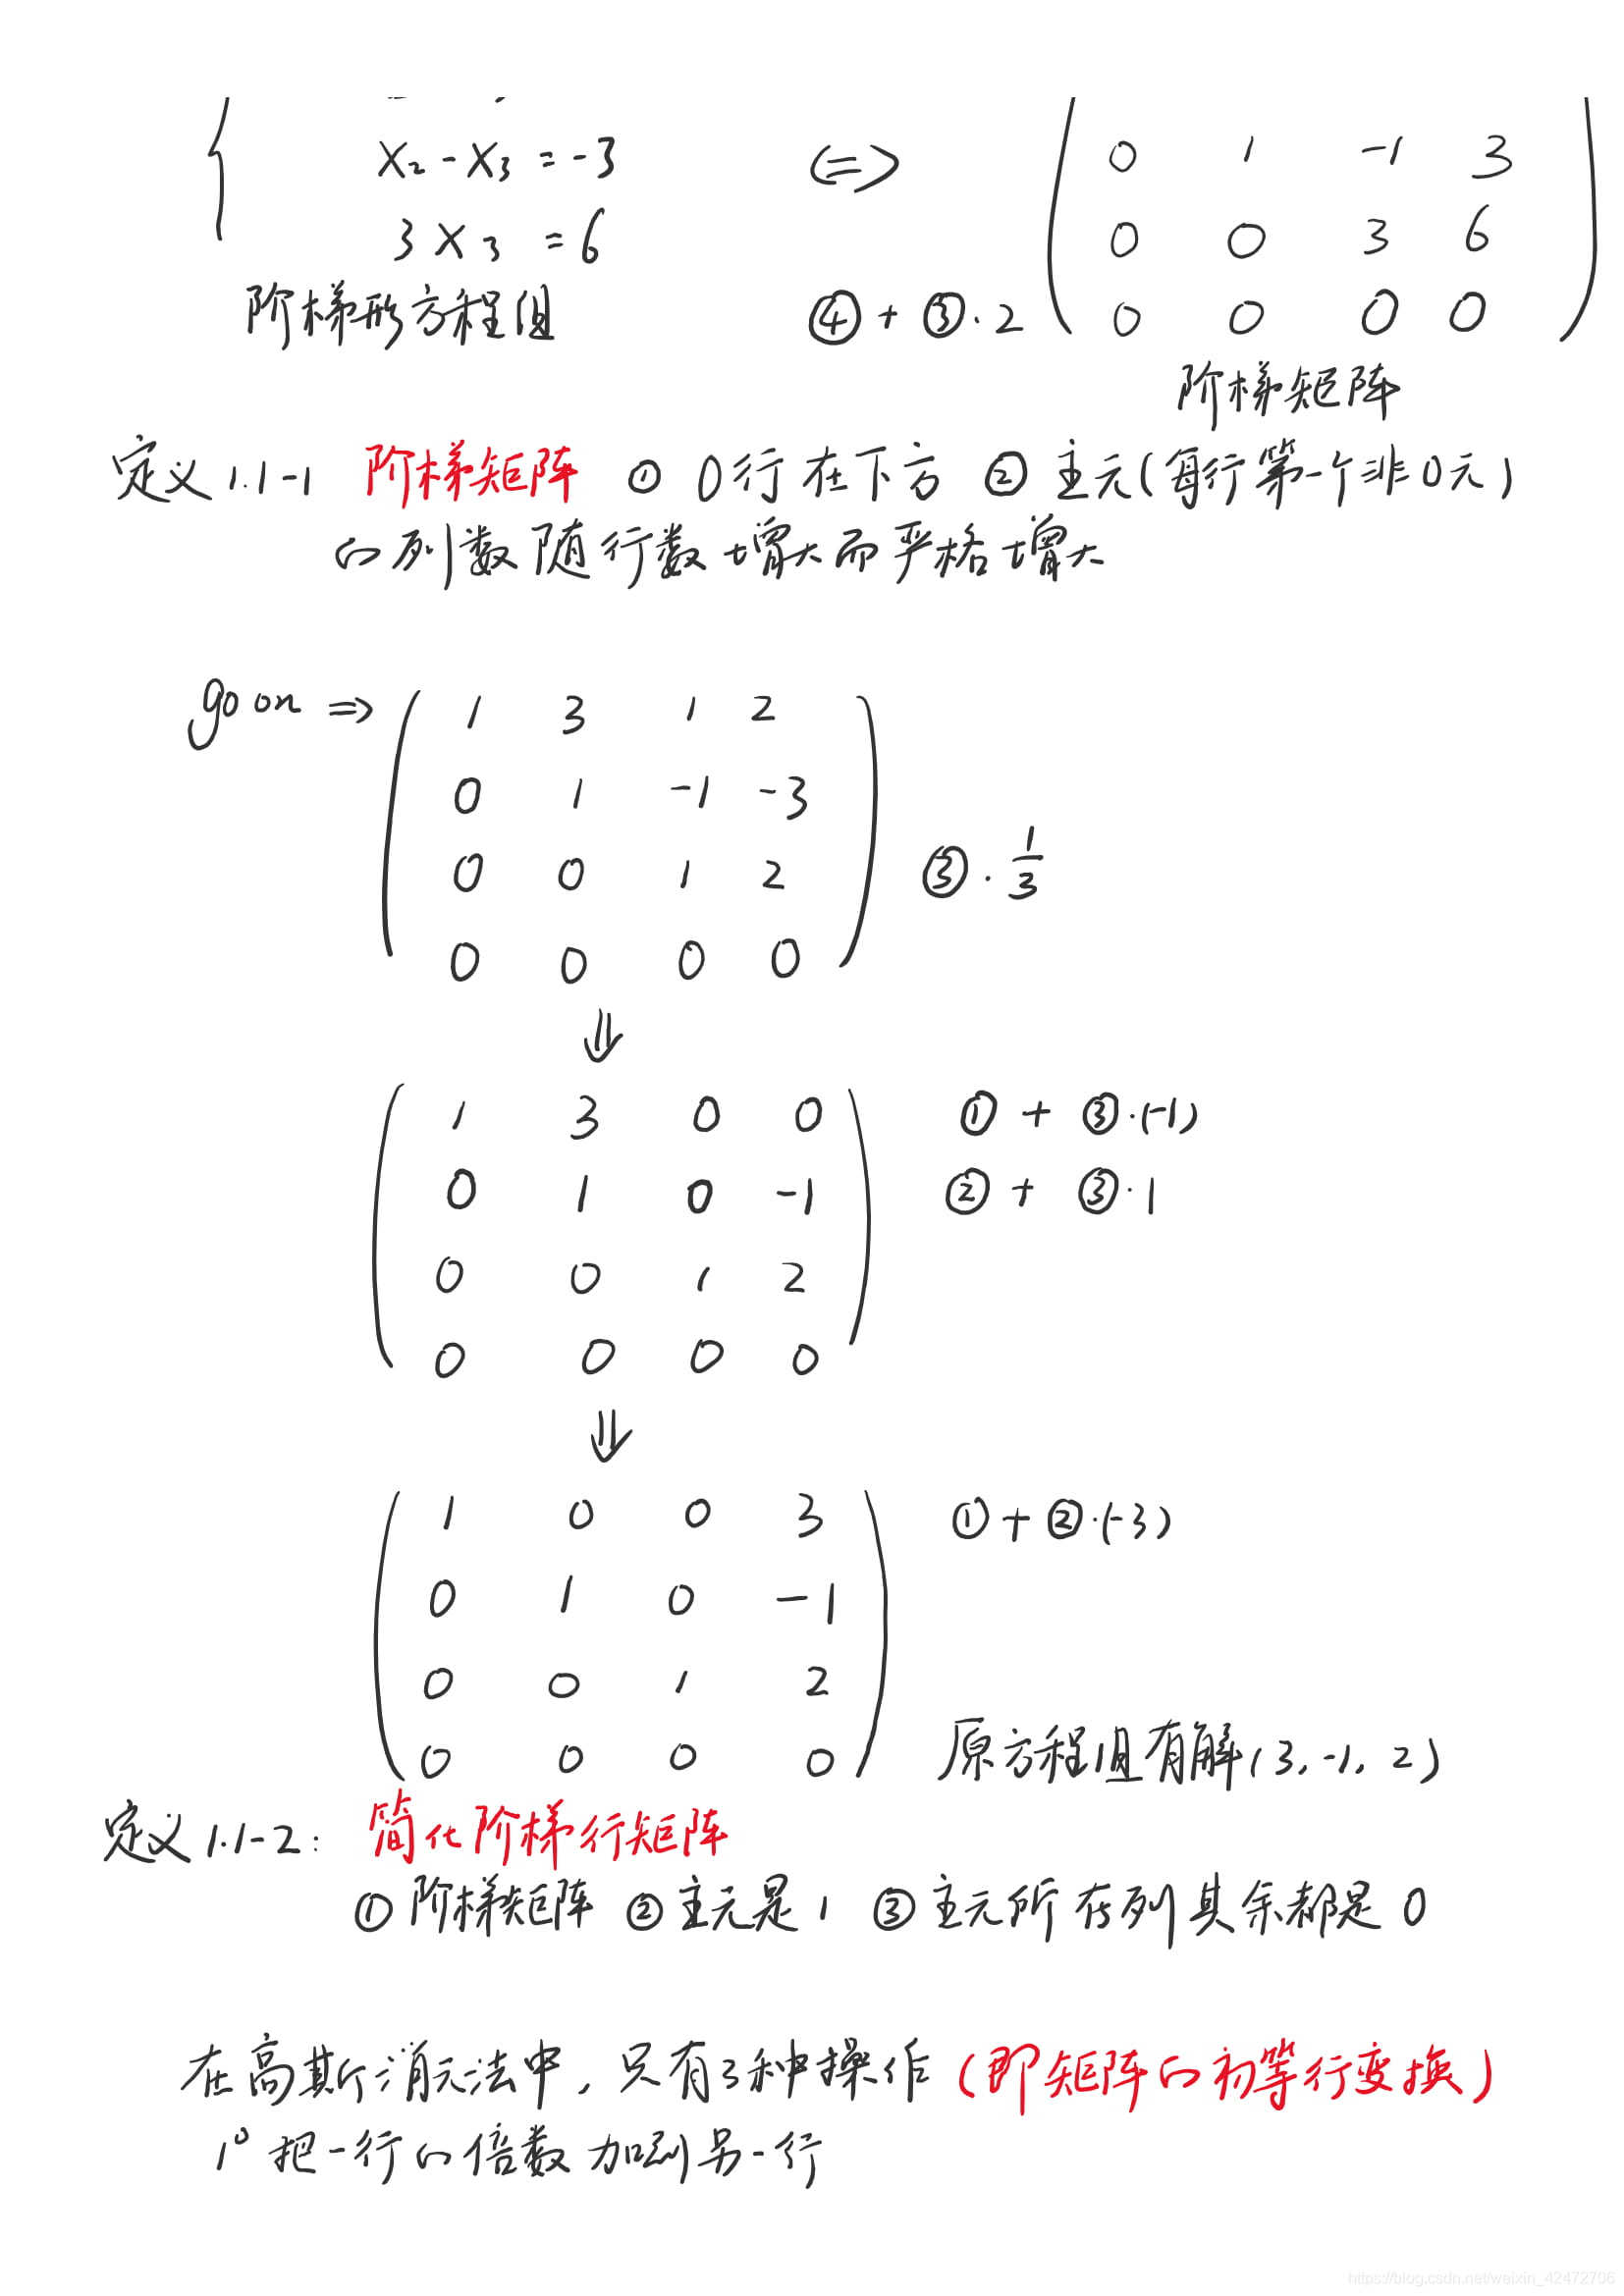 x₂ - x₃ = -3 <=> 0 1 -1 3
3x₃ = 6 0 0 3 6
阶梯形方程组 ④ + ③·2 0 0 0 0
阶梯矩阵
定义1.1-1 阶梯矩阵 ① 0行在下方 ② 主元(每行第一个非0元)
的列数随行数增大而严格增大
go on ⇒ 1 3 1 2
0 1 -1 -3
0 0 1 2 ③·1/3
0 0 0 0
⇓
1 3 0 0 ① + ③·(-1)
0 1 0 -1 ② + ③·1
0 0 1 2
0 0 0 0
⇓
1 0 0 3 ① + ②·(-3)
0 1 0 -1
0 0 1 2
0 0 0 0 原方程组有解(3, -1, 2)
定义1.1-2: 简化阶梯行矩阵
① 阶梯矩阵 ② 主元是1 ③ 主元所在列其余都是0
在高斯消元法中, 只有3种操作(即矩阵的初等行变换)
1° 把一行的倍数加到另一行
https://blog.csdn.net/weixin_42472706